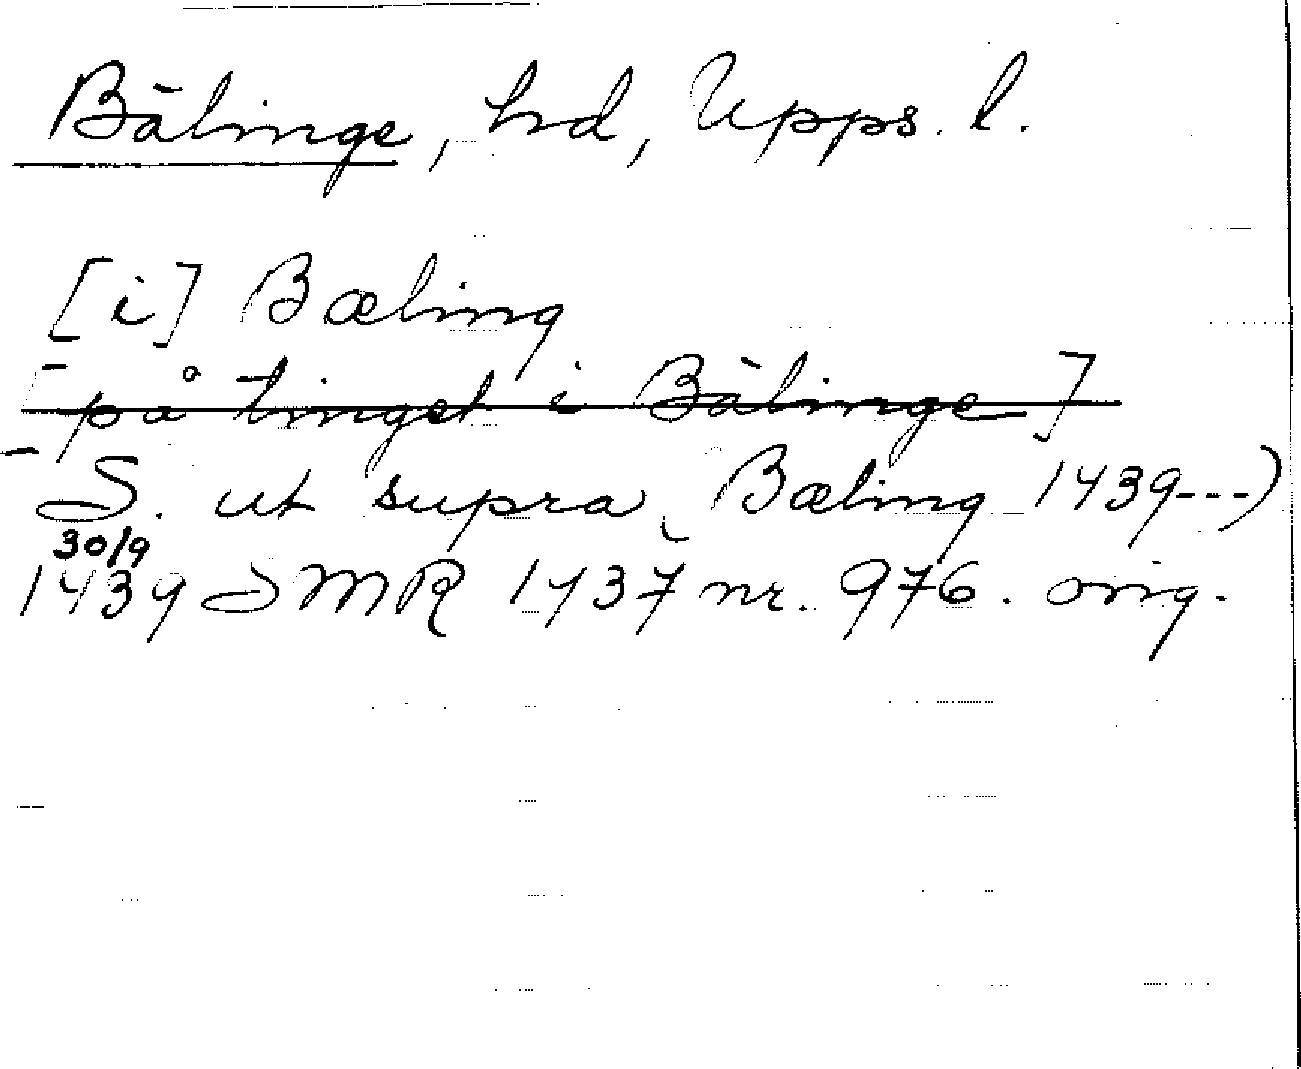 Bälinge, hd, Upps. l.
[i] Bæling
[på tinget i Bälinge]
S. ut supra, Bæling 1439---)
30/9
1439 SMR 1437 nr. 976. orig.